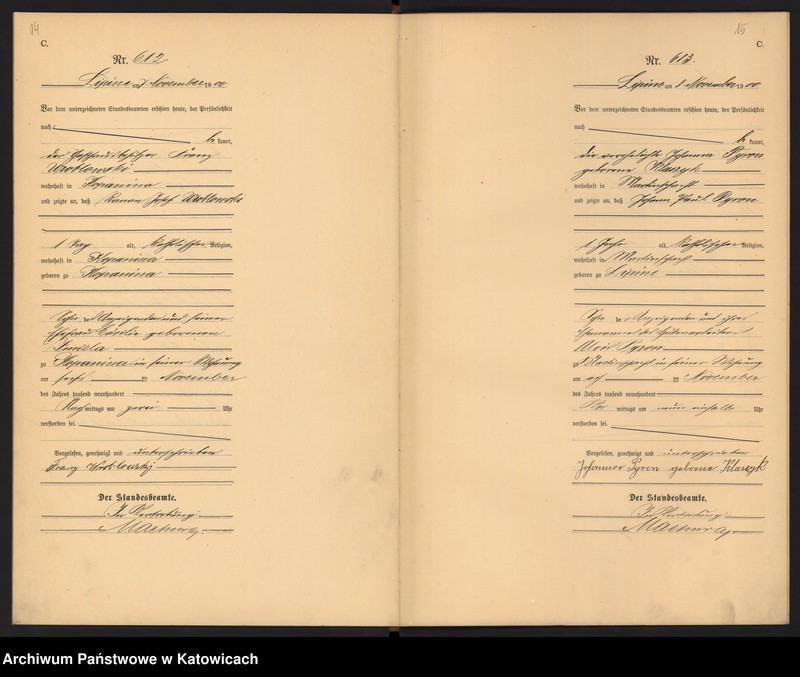 14
C.
Nr. 612
Lipine am 7 November 1900
Vor dem unterzeichneten Standesbeamten erschien heute, der Persönlichkeit
nach
be kannt,
der Franz
Wroblowski
wohnhaft in Kopanina
und zeigte an, daß Roman Josef Wroblowski
1 Tag alt, katholischer Religion,
wohnhaft in Kopanina
geboren zu Kopanina
Sohn des Anzeigenden und seiner
Ehefrau Cäcilie geborenen
zu Kopanina in seiner Wohnung
am sechs ten November
des Jahres tausend neunhundert
Nach mittags um zwei Uhr
verstorben sei.
Vorgelesen, genehmigt und unterschrieben
Franz Wroblowski
Der Standesbeamte.
In Vertretung.
15
C.
Nr. 613.
Lipine am 8 November 1900
Vor dem unterzeichneten Standesbeamten erschien heute, der Persönlichkeit
nach
be kannt,
die verehelichte Johanna Pyron
geborene Klaszyk
wohnhaft in Martinschacht
und zeigte an, daß Johann Paul Pyron
1 Jahr alt, katholischer Religion,
wohnhaft in Martinschacht
geboren zu Lipine
Sohn der Anzeigenden und ihres
Ehemannes des Hüttenarbeiters
Alois Pyron
zu Martinschacht in seiner Wohnung
am acht ten November
des Jahres tausend neunhundert
Vor mittags um neun einhalb Uhr
verstorben sei.
Vorgelesen, genehmigt und unterschrieben
Johanna Pyron geborene Klaszyk
Der Standesbeamte.
In Vertretung.
Archiwum Państwowe w Katowicach